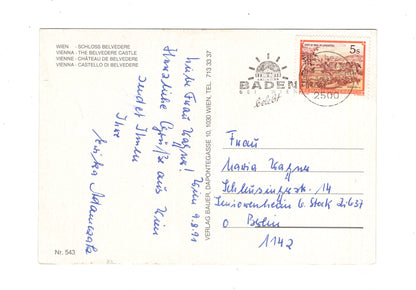 WIEN - SCHLOSS BELVEDERE
VIENNA - THE BELVEDERE CASTLE
VIENNE - CHÂTEAU DE BELVEDERE
VIENNA - CASTELLO DI BELVEDERE
Wien 9.8.91
Liebe Frau Wagner!
Herzliche Grüße aus Wien
sendet Ihnen
Ihre
Erika Adamczak
Nr. 543
VERLAG BAUER, DAPONTEGASSE 10, 1030 WIEN, TEL. 713 33 37
BADEN
BEI WIEN
belebt
2500
5s
Frau
Maria Wagner
Schleusingerstr. 14
Seniorenheim 6. Stock Zi. 637
O Berlin
1142